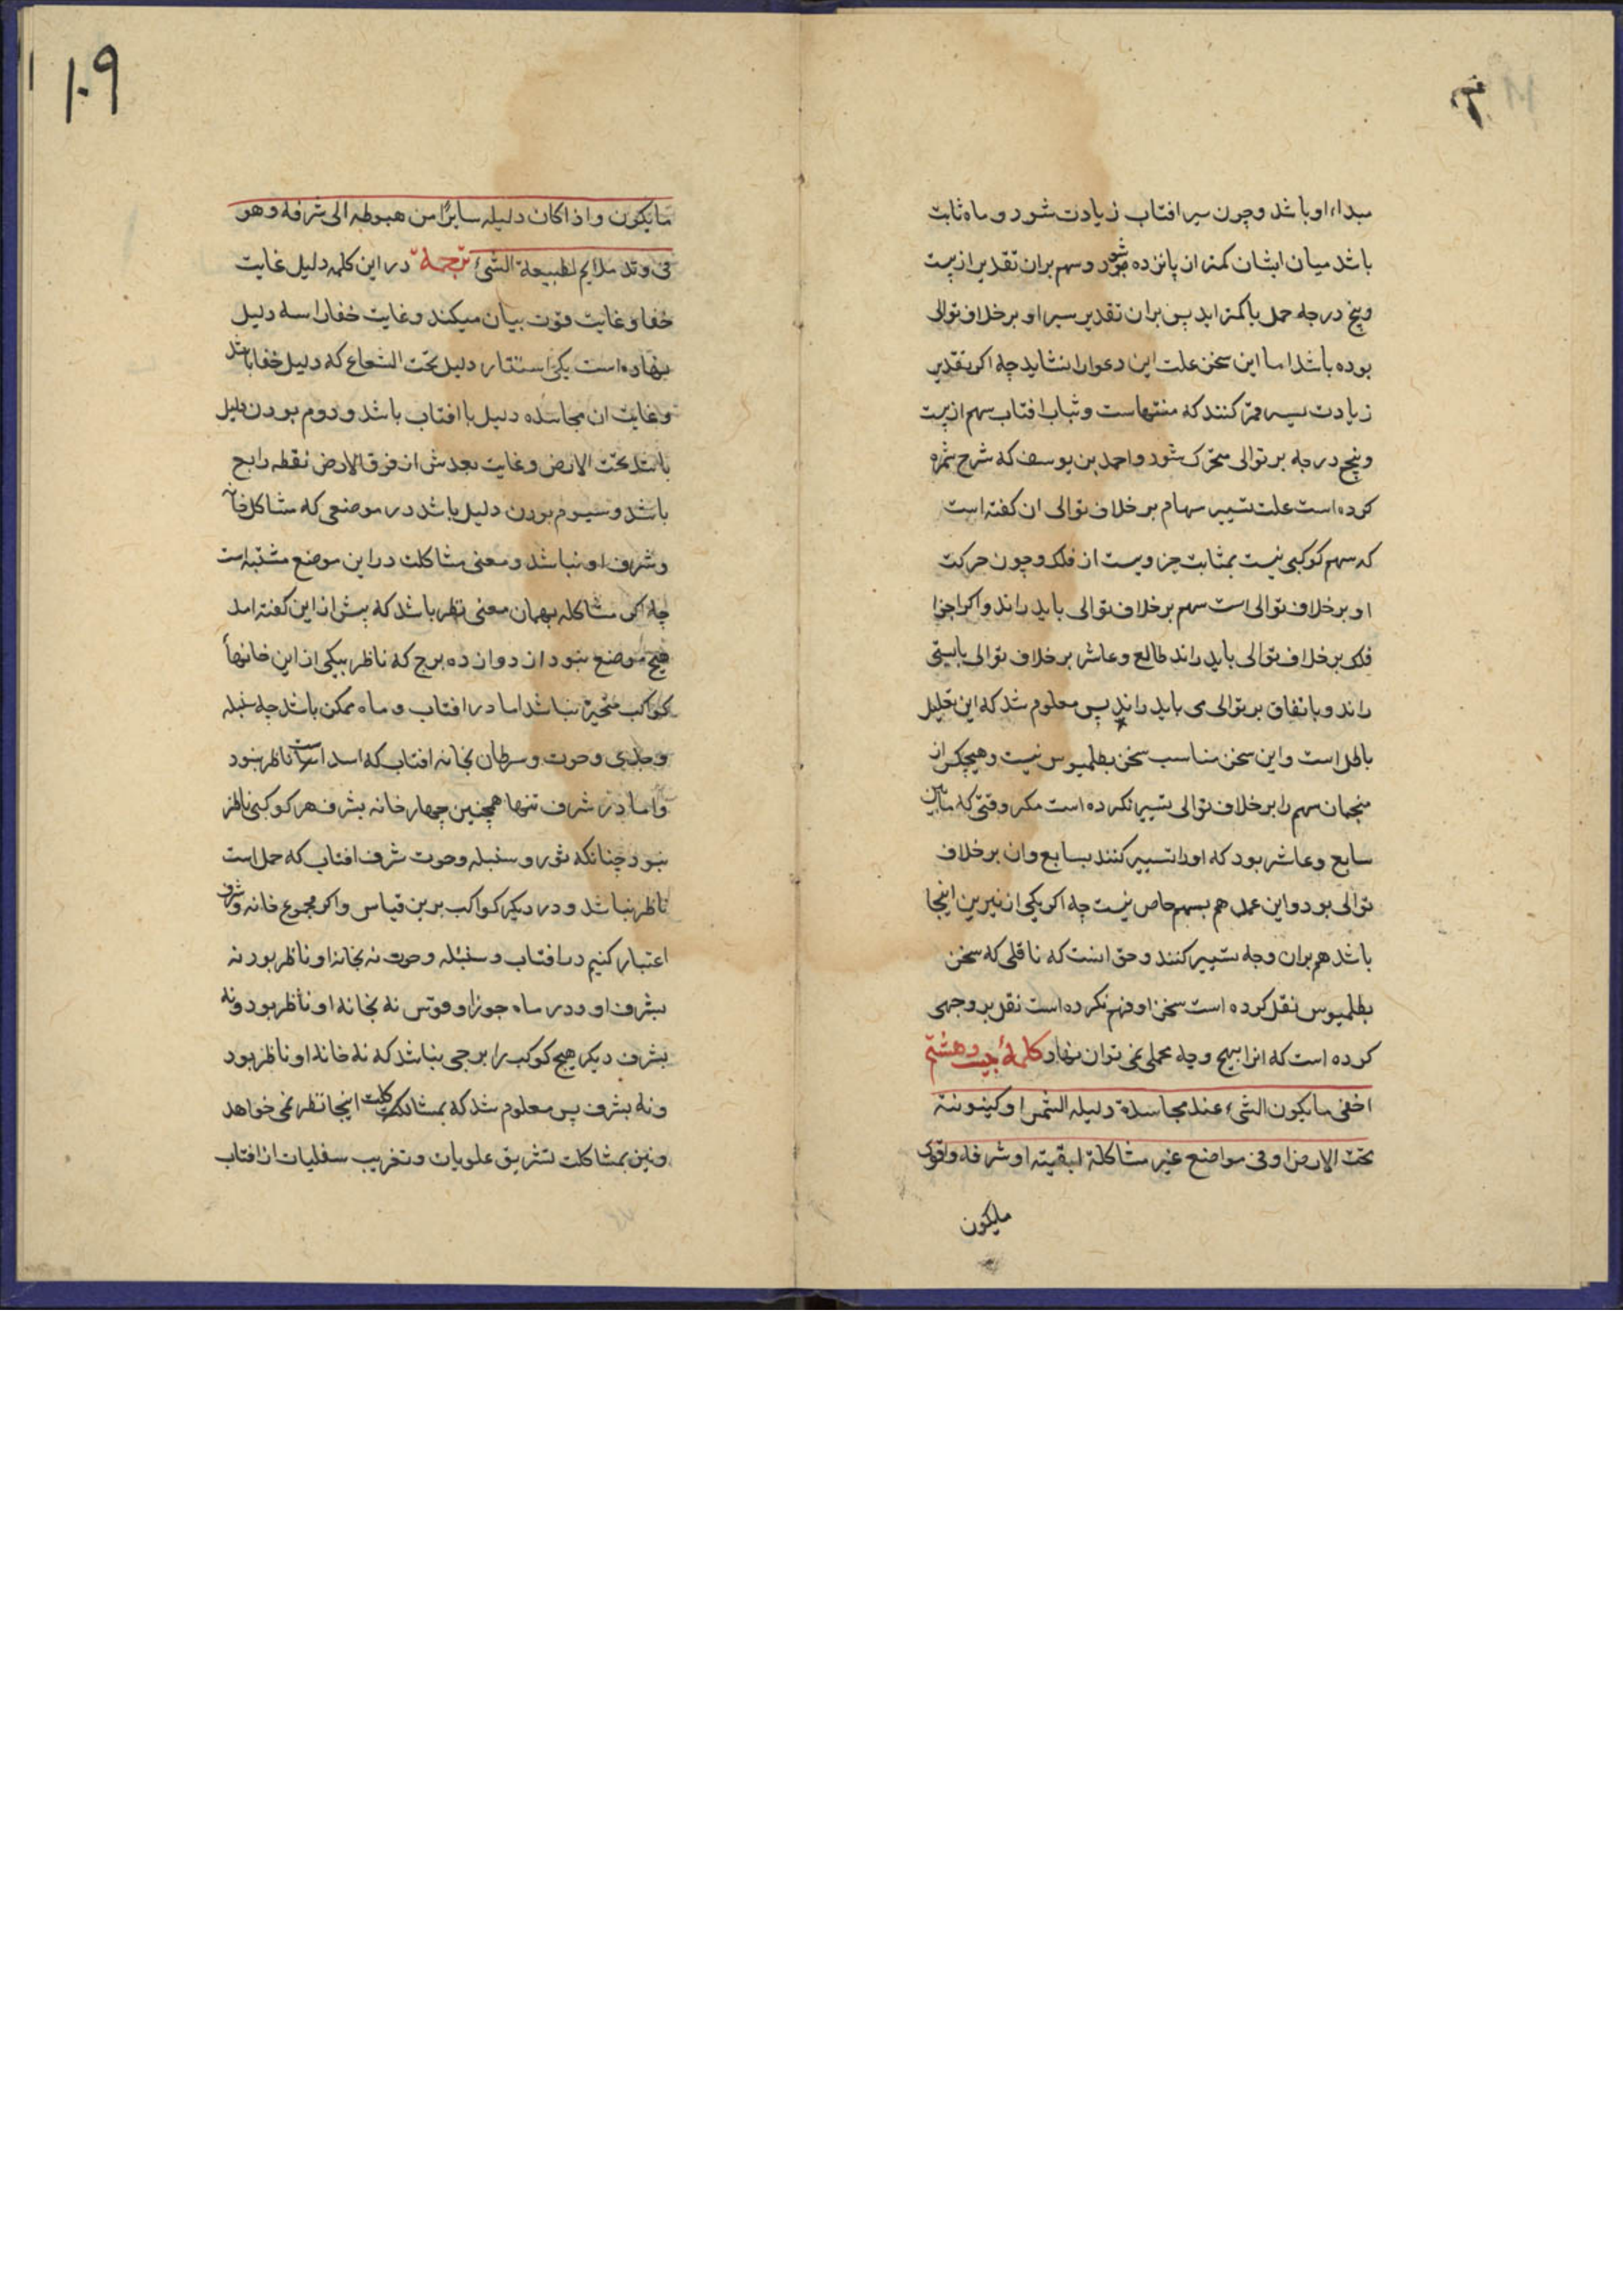 مبداء او باشد و چون سیر افتاب زیادت شود و ماه ثابت
باشد میان ایشان کمتر از پانزده شود و سهم بران تقدیر از بیست
و پنج درجه حمل با کمتر اید پس بران تقدیر سیر او بر خلاف توالی
بوده باشد اما این سخن علت این دعوی را نشاید چه اکر تقدیر
زیادت بسیر قمر کنند که منتهاست و ثبات افتاب سهم از بیست
و پنج درجه بر توالی متحرک شود و احمد بن یوسف که شرح ثمره
کرده است علت تسییر سهام بر خلاف توالی ان کفته است
که سهم کوکبی نیست بمثابت جزویست از فلک و چون حرکت
او بر خلاف توالی است سهم بر خلاف توالی باید راند و اکر اجزا
فلک بر خلاف توالی باید راند طالع و عاشر بر خلاف توالی بایستی
راند و باتفاق بر توالی می باید راند پس معلوم شد که این تعلیل
باطل است و این سخن مناسب سخن بطلمیوس نیست و هیچکس از
منجمان سهم را بر خلاف توالی تسییر نکرده است مکر وقتی که مابین
سابع و عاشر بود که او را تسییر کنند بسابع و ان بر خلاف
توالی بود و این عمل هم بسهم خاص نیست چه اکر یکی از نیرین اینجا
باشد هم بران وجه تسییر کنند و حق انست که ناقلی که سخن
بطلمیوس نقل کرده است سخن او فهم نکرده است نقل بر وجهی
کرده است که انرا بهیچ وجه محملی نمی توان نهاد کلمهٔ بیست و هشتم
اخفی مایکون الشیء عند مجاسدة دلیله الشمس او کینونته
تحت الارض او فی مواضع غیر مشاکلة لبقیته او شرفه و اقوی
مایکون
۱۰۹
مایکون و اذا کان دلیله سایرًا من هبوطه الی شرفه و هو
فی وتد ملایم لطبیعة الشیٔ ترجمه در این کلمه دلیل غایت
خفا و غایت قوت بیان میکند و غایت خفا را سه دلیل
نهاده است یکی استتار دلیل تحت الشعاع که دلیل خفا باشد
و غایت ان مجاسده دلیل با افتاب باشد و دوم بودن دلیل
باشد تحت الارض و غایت بعدش از فوق الارض نقطه رابع
باشد و سیوم بودن دلیل باشد در موضعی که مشاکل خانه
و شرف او نباشد و معنی مشاکلت در این موضع مشتبه است
چه اکر مشاکله بهمان معنی نظر باشد که پیش از این کفته امد
هیچ موضع نبود از دوازده برج که ناظر بیکی از این خانهاء
کواکب متحیره نباشد اما در افتاب و ماه ممکن باشد چه سنبله
و جدی و حوت و سرطان بخانه افتاب که اسد است ناظر نبود
و اما در شرف تنها همچنین چهار خانه بشرف هر کوکبی ناظر
نبود چنانکه ثور و سنبله و حوت شرف افتاب که حمل است
ناظر نباشد و در دیکر کواکب برین قیاس و اکر مجموع خانه و شرف
اعتبار کنیم در افتاب و سنبله و حوت نه بخانهٔ او ناظر بود نه
بشرف او و در ماه جوزا و قوس نه بخانهٔ او ناظر بود و نه
بشرف دیکر هیچ کوکب را برجی نباشد که نه خانهٔ او ناظر بود
و نه بشرف پس معلوم شد که بمشاکلت اینجا نظر نمی خواهد
و نیز بمشاکلت تشریق علویات و تغریب سفلیات از افتاب